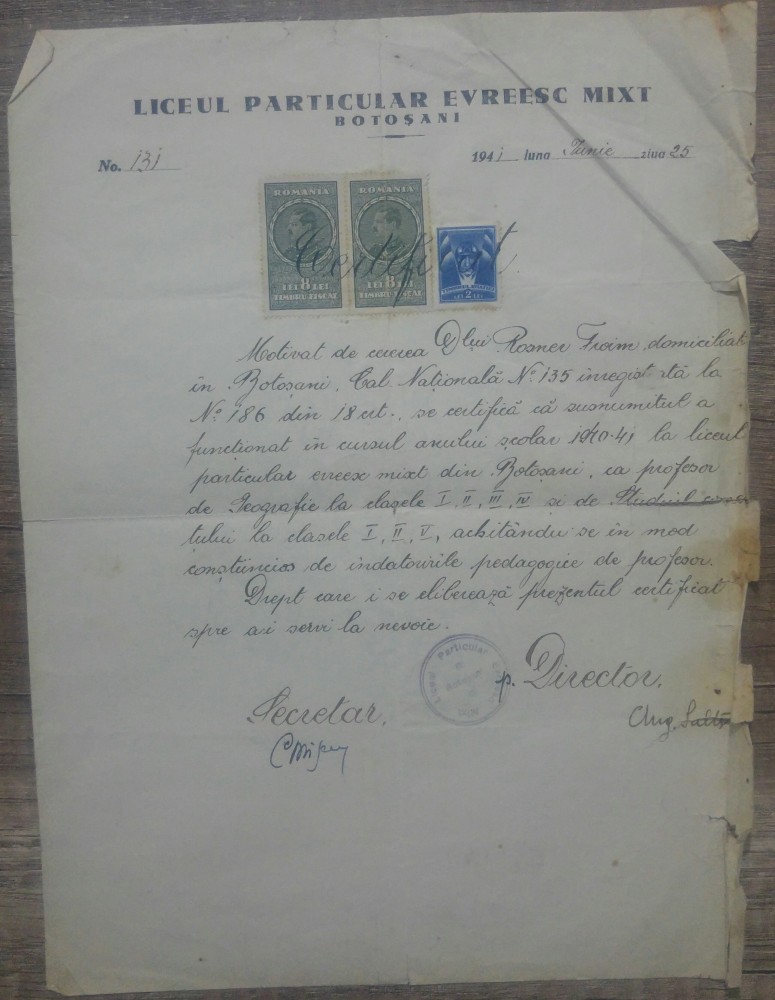 LICEUL PARTICULAR EVREESC MIXT
BOTOȘANI
No. 131
1941 luna Iunie ziua 25
ROMANIA ROMANIA
Certificat
LEI 8 LEI LEI 8 LEI
TIMBRU FISCAL TIMBRU FISCAL
2
Motivat de cererea Dlui Rosner Froim domiciliat
în Botoșani, Cal. Națională No 135 înregist tă la
No 186 din 18 crt., se certifică că susnumitul a
funcționat în cursul anului școlar 1940-41 la liceul
particular evreesc mixt din Botoșani, ca profesor
de Geografie la clasele I, II, III, IV si de Studiul
tului la clasele I, II, V, achitându-se în mod
conștiincios de îndatoririle pedagogice de profesor.
Drept care i se eliberează prezentul certificat
spre a-i servi la nevoie.
Liceul Particular
p. Director,
Secretar,